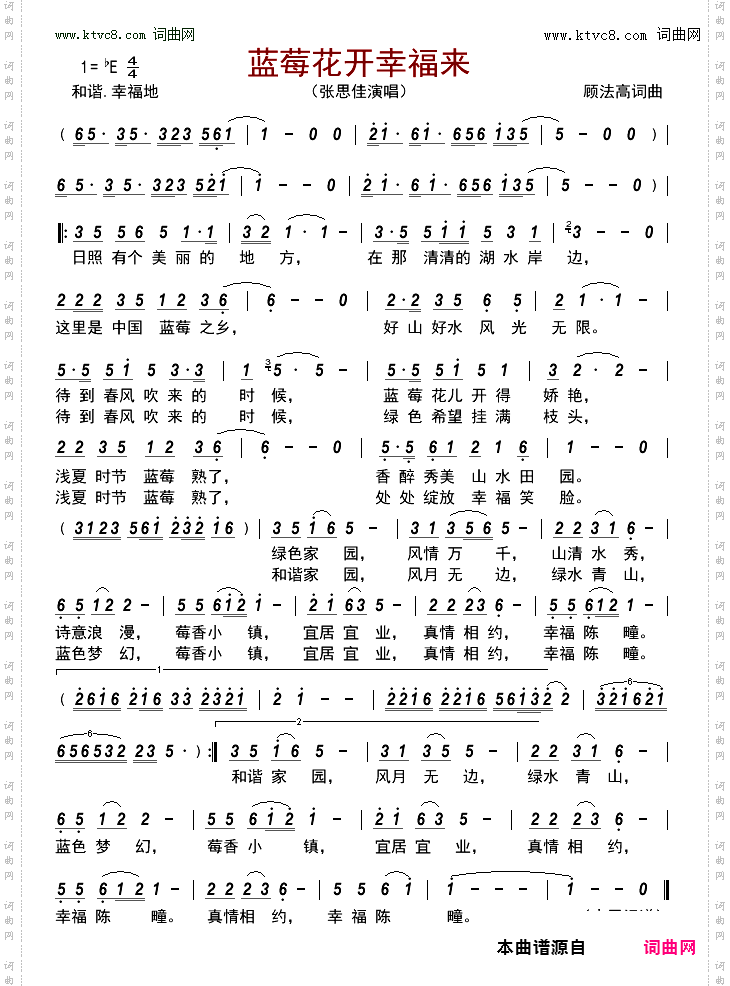 www.ktvc8.com 词曲网
www.ktvc8.com 词曲网
蓝莓花开幸福来
1=♭E 4/4
和谐.幸福地
（张思佳演唱）
顾法高词曲
( 65· 35· 323 561 | 1 - 0 0 | 21· 61· 656 135 | 5 - 0 0 ) |
65· 35· 323 521 | 1 - - 0 | 21· 61· 656 135 | 5 - - 0 ) |
‖: 35 56 5 1·1 | 32 1·1 - | 3·5 511 5 31 | 3 - - 0 |
日照 有个 美 丽 的 地 方， 在 那 清清的 湖 水 岸 边，
222 35 12 36 | 6 - - 0 | 2·2 35 6 5 | 21·1 - |
这里是 中国 蓝莓 之乡， 好 山 好水 风 光 无 限。
5·5 51 5 3·3 | 1 5·5 - | 5·5 551 51 | 32·2 - |
待 到 春风 吹 来 的 时 候， 蓝 莓 花儿 开 得 娇 艳，
待 到 春风 吹 来 的 时 候， 绿 色 希望 挂 满 枝 头，
22 35 12 36 | 6 - - 0 | 5·5 61 21 6 | 1 - - 0 |
浅夏 时节 蓝莓 熟了， 香 醉 秀美 山 水 田 园。
浅夏 时节 蓝莓 熟了， 处 处 绽放 幸 福 笑 脸。
( 3123 561 232 16 ) | 35 16 5 - | 31 356 5 - | 22 31 6 - |
绿色家 园， 风情 万 千， 山清 水 秀，
和谐家 园， 风月 无 边， 绿水 青 山，
65 12 2 - | 55 612 1 - | 21 63 5 - | 22 23 6 - | 55 612 1 - |
诗意浪 漫， 莓香小 镇， 宜居 宜 业， 真情 相 约， 幸福 陈 疃。
蓝色梦 幻， 莓香小 镇， 宜居 宜 业， 真情 相 约， 幸福 陈 疃。
1
( 2616 216 33 2321 | 21 - - | 2216 2216 56132 2 | 321621
6
6
656532 23 5· ) :‖ 35 16 5 - | 31 35 5 - | 22 31 6 - |
2
和谐 家 园， 风月 无 边， 绿水 青 山，
65 12 2 - | 55 612 1 - | 21 63 5 - | 22 23 6 - |
蓝色 梦 幻， 莓香 小 镇， 宜居 宜 业， 真情 相 约，
55 612 1 - | 22 23 6 - | 55 5 61 | 1 - - - | 1 - - 0 ‖
幸福 陈 疃。 真情相 约， 幸 福 陈 疃。
本曲谱源自 词曲网